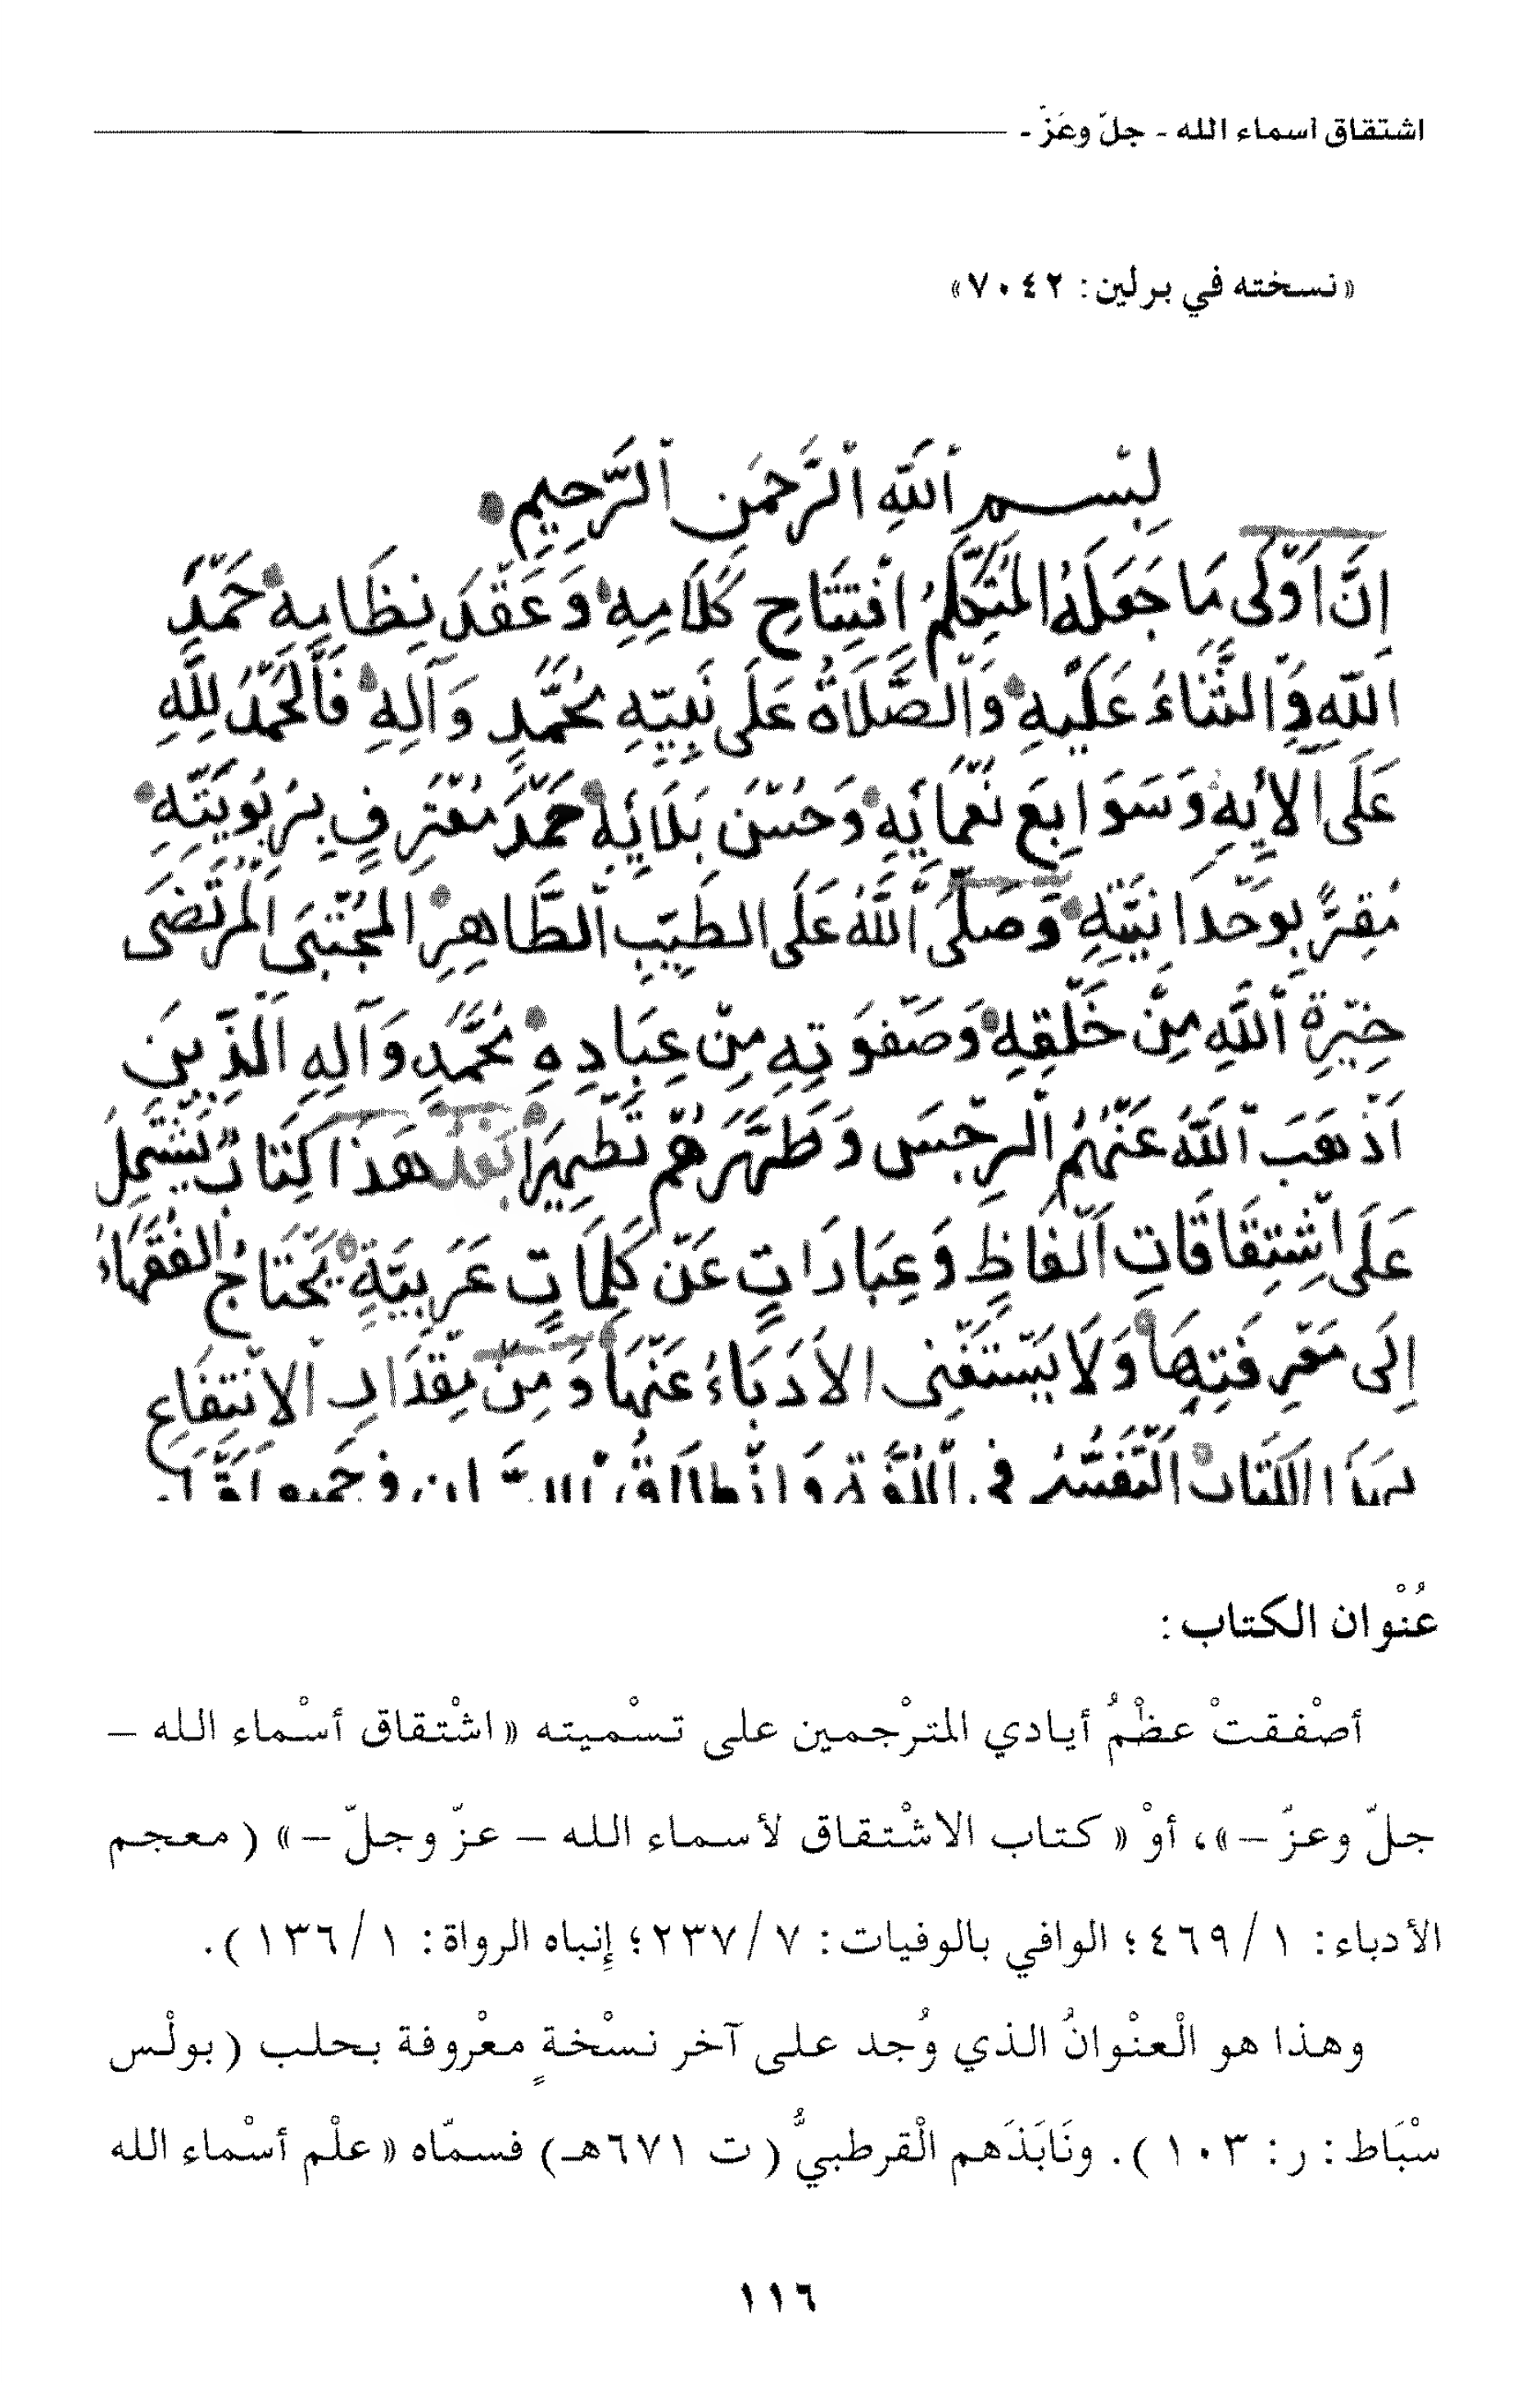 اشتقاق أسماء الله - جلّ وعَزّ -
«نسخته في برلين: ٧٠٤٢»
بِسْمِ اللَّهِ الرَّحْمَنِ الرَّحِيمِ
إِنَّ أَوْلَى مَا جَعَلَهُ الْمُتَكَلِّمُ افْتِتَاحَ كَلَامِهِ وَعَقْدَ نِظَامِهِ حَمْدُ
اللَّهِ وَالثَّنَاءُ عَلَيْهِ وَالصَّلَاةُ عَلَى نَبِيِّهِ مُحَمَّدٍ وَآلِهِ فَالْحَمْدُ لِلَّهِ
عَلَى آلَائِهِ وَسَوَابِغِ نَعْمَائِهِ وَحُسْنِ بَلَائِهِ حَمْدَ مُعْتَرِفٍ بِرُبُوبِيَّتِهِ
مُقِرٍّ بِوَحْدَانِيَّتِهِ وَصَلَّى اللَّهُ عَلَى الطَّيِّبِ الطَّاهِرِ الْمُجْتَبَى الْمُرْتَضَى
خِيَرَةِ اللَّهِ مِنْ خَلْقِهِ وَصَفْوَتِهِ مِنْ عِبَادِهِ مُحَمَّدٍ وَآلِهِ الَّذِينَ
أَذْهَبَ اللَّهُ عَنْهُمُ الرِّجْسَ وَطَهَّرَهُمْ تَطْهِيرًا بَعْدُ هَذَا كِتَابٌ يَشْتَمِلُ
عَلَى اشْتِقَاقَاتِ أَلْفَاظٍ وَعِبَارَاتٍ عَنْ كَلِمَاتٍ عَرَبِيَّةٍ يَحْتَاجُ الْفُقَهَاءُ
إِلَى مَعْرِفَتِهَا وَلَا يَسْتَغْنِي الْأُدَبَاءُ عَنْهَا وَمِنْ مِقْدَارِ الِانْتِفَاعِ
بِهَذَا الْكِتَابِ التَّفَسُّحُ فِي اللُّغَةِ وَانْطِلَاقُ اللِّسَانِ
عُنْوان الكتاب:
أصْفقتْ عظْمُ أيادي المترْجمين على تسْميته «اشْتقاق أسْماء الله –
جلّ وعزّ –»، أوْ «كتاب الاشْتقاق لأسماء الله – عزّ وجلّ –» (معجم
الأدباء: ١/٤٦٩؛ الوافي بالوفيات: ٧/٢٣٧؛ إنباه الرواة: ١/١٣٦).
وهذا هو الْعنْوانُ الذي وُجد على آخر نسْخةٍ معْروفة بحلب (بولْس
سْبَاط: ر: ١٠٣). ونَابَذَهم الْقرطبيُّ (ت ٦٧١هـ) فسمّاه «علْم أسْماء الله
١١٦